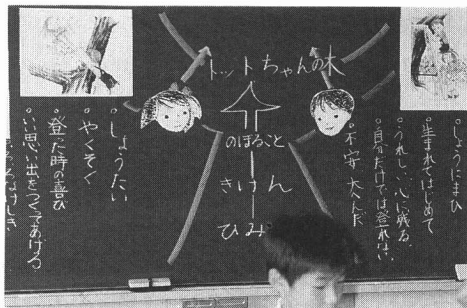 トットちゃんの木
のぼること
きけん
ひみ
しょうにまひ
生まれてはじめて
うれしい、心に残る。
自分だけでは登れない。
不安 大へんだ
しょうたい
やくそく
登た時の喜び
いい思い出をつくってあげる